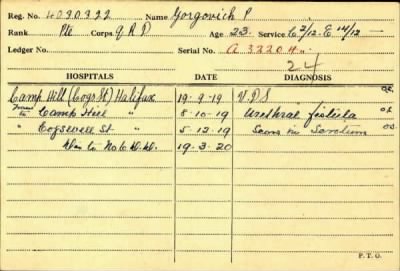 Reg. No. 4090322 Name Gorgovich P
Rank Pte Corps G.R.D Age 23. Service C 2/12 - E 14/12 —
Ledger No. Serial No. A 33204.
24
HOSPITALS DATE DIAGNOSIS
Camp Hill (Cogs St) Halifax 19-9-19 V.D.S
to Camp Hill " 8-10-19 Urethral fistula
" Cogswell St " 5-12-19
to No 6 19-3-20
P.T.O.